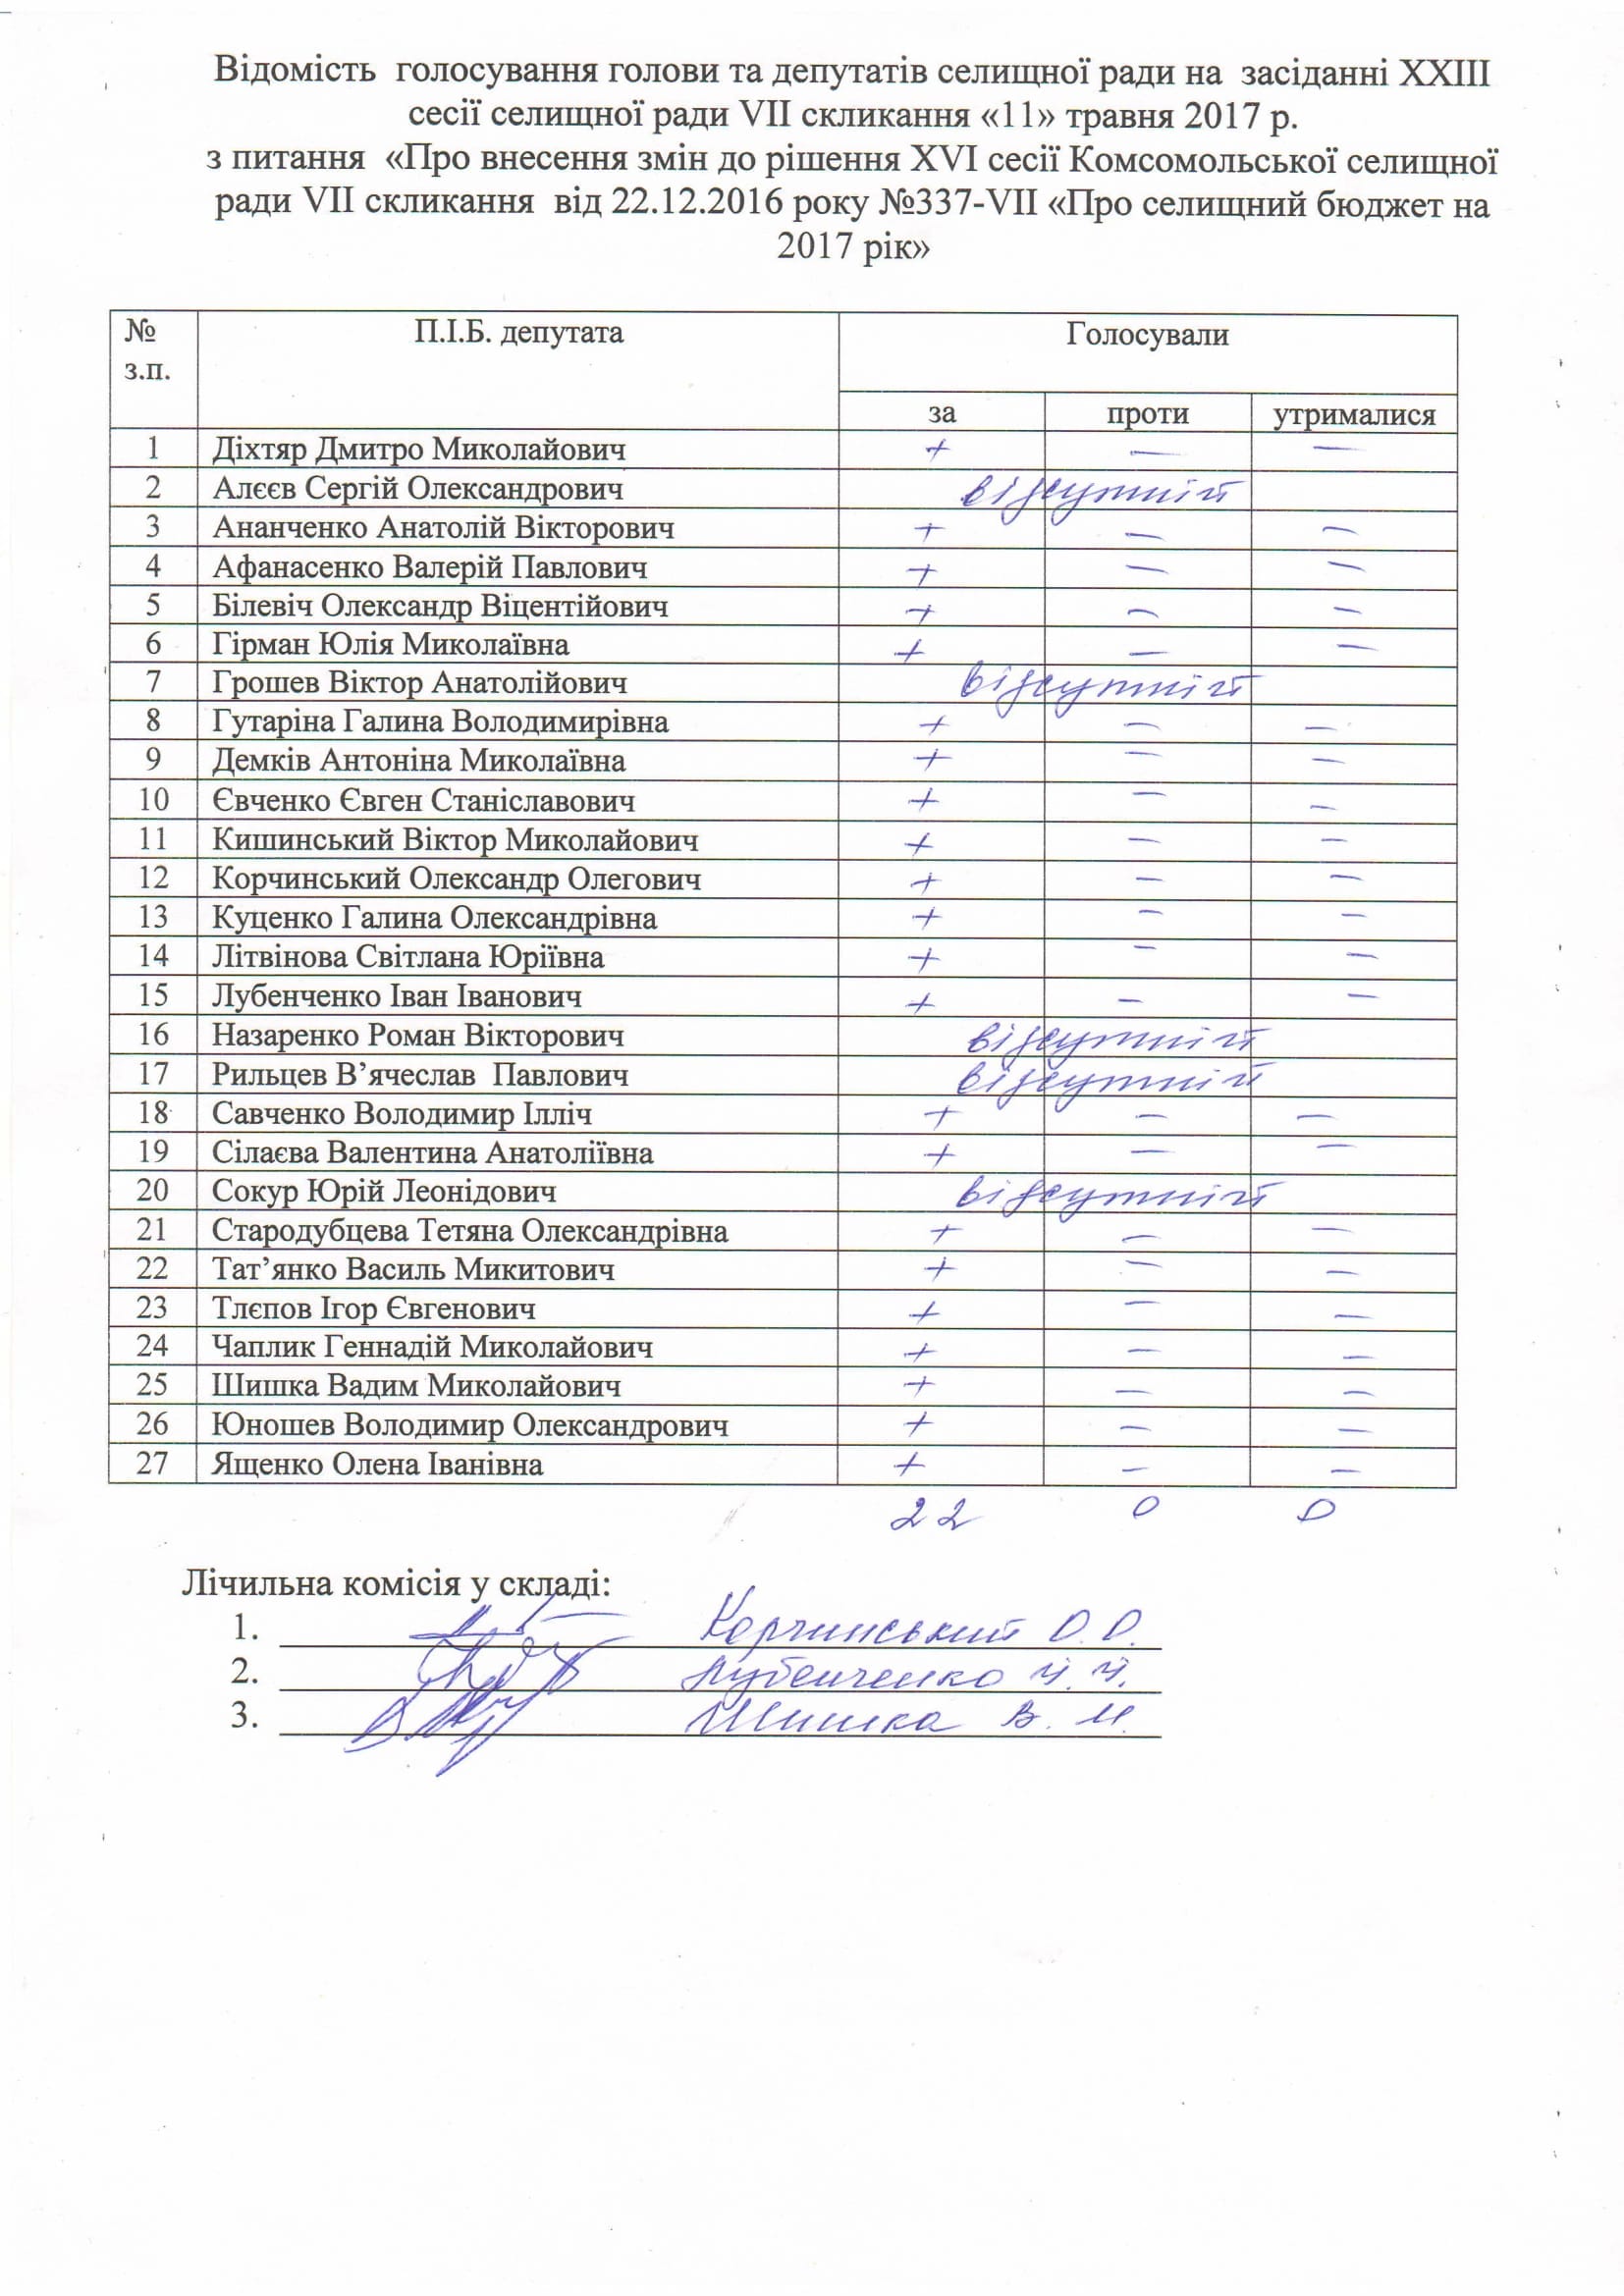 Відомість голосування голови та депутатів селищної ради на засіданні XXIII
сесії селищної ради VII скликання «11» травня 2017 р.
з питання «Про внесення змін до рішення XVI сесії Комсомольської селищної
ради VII скликання від 22.12.2016 року №337-VII «Про селищний бюджет на
2017 рік»
№ з.п. П.І.Б. депутата Голосували
за проти утрималися
1 Діхтяр Дмитро Миколайович + — —
2 Алєєв Сергій Олександрович відсутній
3 Ананченко Анатолій Вікторович + — —
4 Афанасенко Валерій Павлович + — —
5 Білевіч Олександр Віцентійович + — —
6 Гірман Юлія Миколаївна + — —
7 Грошев Віктор Анатолійович відсутній
8 Гутаріна Галина Володимирівна + — —
9 Демків Антоніна Миколаївна + — —
10 Євченко Євген Станіславович + — —
11 Кишинський Віктор Миколайович + — —
12 Корчинський Олександр Олегович + — —
13 Куценко Галина Олександрівна + — —
14 Літвінова Світлана Юріївна + — —
15 Лубенченко Іван Іванович + — —
16 Назаренко Роман Вікторович відсутній
17 Рильцев В’ячеслав Павлович відсутній
18 Савченко Володимир Ілліч + — —
19 Сілаєва Валентина Анатоліївна + — —
20 Сокур Юрій Леонідович відсутній
21 Стародубцева Тетяна Олександрівна + — —
22 Тат’янко Василь Микитович + — —
23 Тлєпов Ігор Євгенович + — —
24 Чаплик Геннадій Миколайович + — —
25 Шишка Вадим Миколайович + — —
26 Юношев Володимир Олександрович + — —
27 Ященко Олена Іванівна + — —
22 0 0
Лічильна комісія у складі:
1. Корчинський О.О.
2. Лубенченко И.И.
3. Шишка В. М.